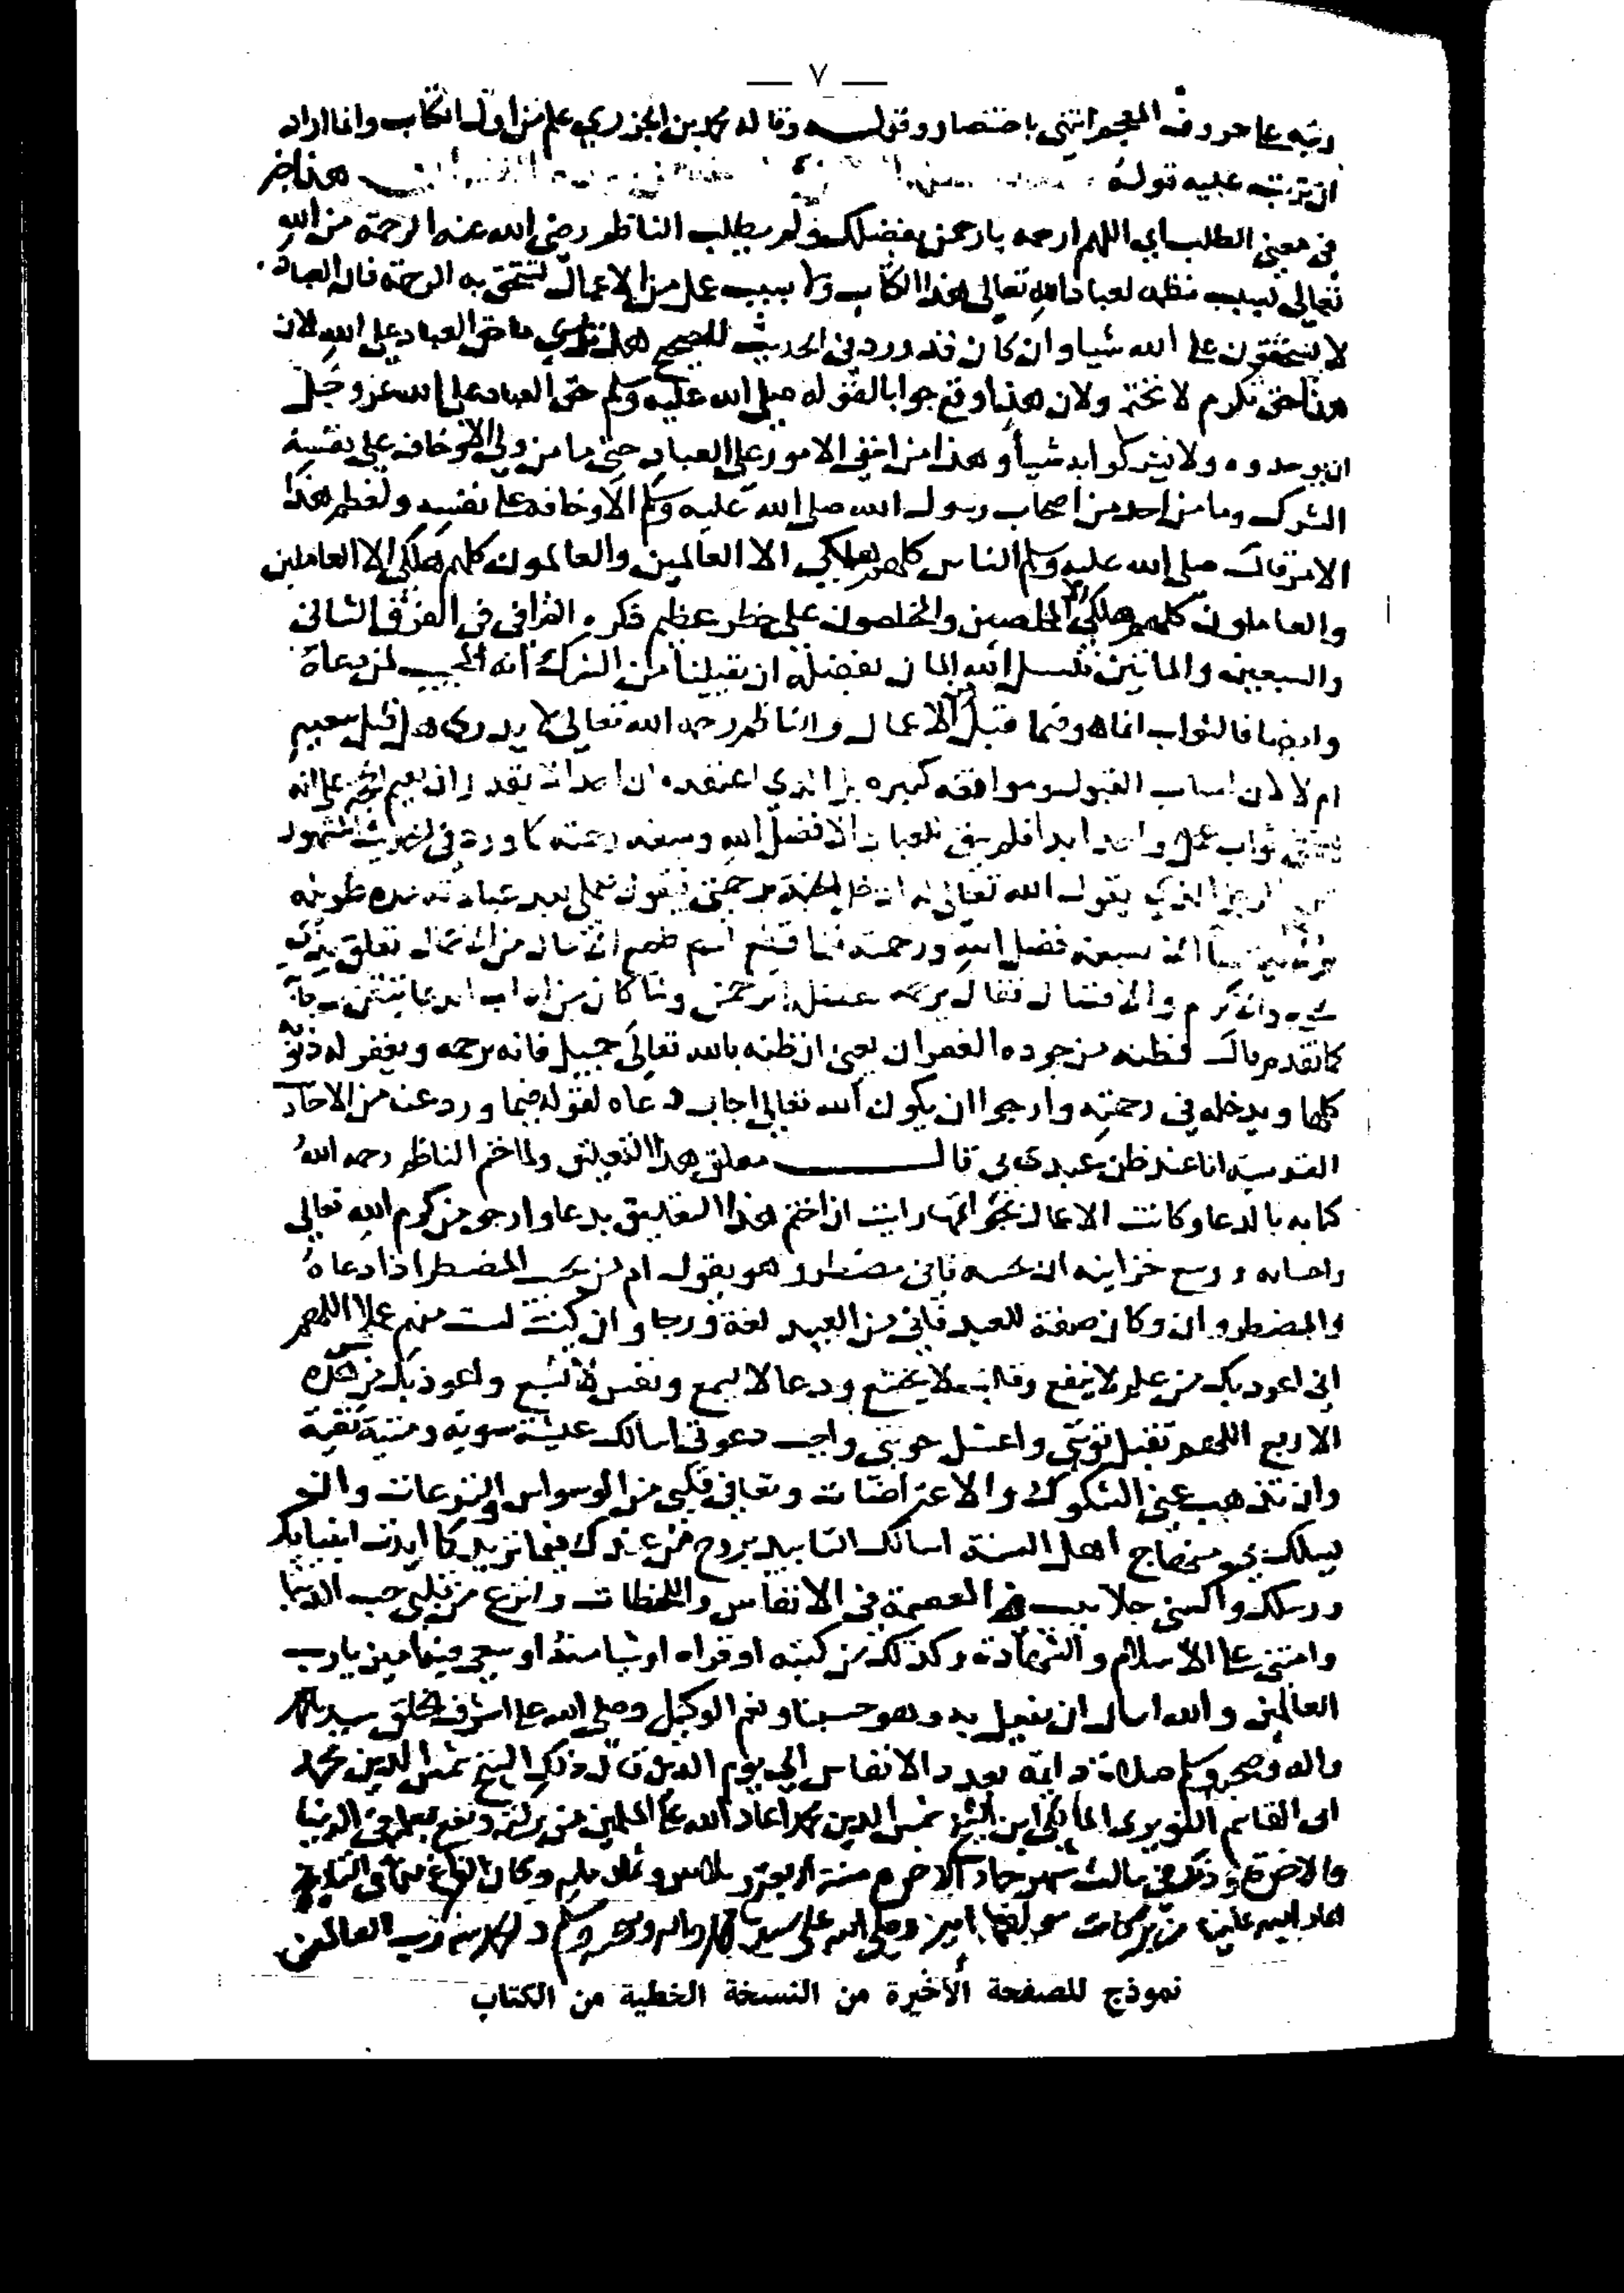 — ٧ —
رتبه على حروف المعجم انتهى باختصار وقوله وقاله محمد بن الجزري علم من اول الكتاب وانما اراد
ان يرتب عليه قوله هذا خبر
في معنى الطلب اي اللهم ارحمه يا رحمن بفضلك ولم يطلب الناظم رضي الله عنه الرحمة من الله
تعالى بسبب نظمه لعباد الله تعالى هذا الكتاب ولا بسبب عمل من الاعمال لتتحقق به الرحمة فان العباد
لا يستحقون على الله شيا وان كان قد ورد في الحديث الصحيح هل تدري ما حق العباد على الله لان
هذا حق تكرم لا تحتم ولان هذا وقع جوابا لقوله صلى الله عليه وسلم حق العباد على الله عز وجل
ان يوحدوه ولا يشركوا به شيأ وهذا من اخفى الامور على العباد حتى ما من ولي الا وخافه على نفسه
الشرك وما من احد من اصحاب رسول الله صلى الله عليه وسلم الا وخافه على نفسه ولعظم هذا
الامر قال صلى الله عليه وسلم الناس كلهم هلكى الا العالمين والعالمون كلهم هلكى الا العاملين
والعاملون كلهم هلكى الا المخلصين والمخلصون على خطر عظيم ذكره القرافي في الفرق الثاني
والسبعين والماتين نسل الله المان بفضله ان يقينا من الشرك انه المجيب لمن دعاه
وايضا فالثواب انما هو فيما قبل من الاعمال والناظم رحمه الله تعالى لا يدري هل قبل سعيه
ام لا لان اسباب القبول وموافقه كثيره بل الذي اعتقده ان احدا لا يقدر ان على انه
ثواب عمل واحد ابدا فلم يبق للعباد الا فضل الله وسعة رحمته كما ورد في الحديث المشهور
الرجل الذي يقول الله تعالى له ادخل الجنة برحمتي فيقول بعملي بعد عبادته مدة طويلة
فضل الله ورحمته
والافضال فقال يرحمه بفضله الرحمن ولما كان من اداب الدعا
كما تقدم قال فظنه من جوده الغفران يعني ان ظنه بالله تعالى جميل فانه يرحمه ويغفر له ذنوبه
كلها ويدخله في رحمته وارجوا ان يكون الله تعالى اجاب دعاه لقوله فيما ورد عنه من الاحاديث
القدسية انا عند ظن عبدي بي قال معلق هذا التعليق ولما ختم الناظم رحمه الله
كتابه بالدعا وكانت الاعمال بخواتمها رايت ان اختم هذا التعليق بدعا وارجو من كرم الله تعالى
واحسانه ووسع خزاينه ان فاني مضطر وهو يقول ام من يجيب المضطر اذا دعاه
والمضطر وان وكان صفة للعبد فاني من العبيد لغة ورجا وان كنت لست منهم عملا اللهم
اني اعوذ بك من علم لا ينفع وقلب لا يخشع ودعا لا يسمع ونفس لا تشبع واعوذ بك من شر هذه
الاربع اللهم تقبل توبتي واغسل حوبتي واجب دعوتي اسالك عيشة سوية وميتة نقية
وان تذهب عني الشكوك والاعتراضات وتعافي قلبي من الوسواس والنزعات والتو
بيسلك بي نحو منهاج اهل السنة اسالك التاييد بروح من عندك فيما تريد كما ايدت انبياءك
ورسلك واكسني جلابيب العصمة في الانفاس واللحظات وانزع من قلبي حب الدنيا
وامتني على الاسلام والشهادة وكذلك من كتبه او قراه او شيا منه او سعى فيهما امين يارب
العالمين والله اسال ان يفعل به وهو حسبنا ونعم الوكيل وصلى الله على اشرف الخلق سيدنا محمد
واله وصحبه وسلم صلاة دايمة بعدد الانفاس الى يوم الدين قال ذلك الشيخ شمس الدين محمد
ابي القاسم النويري المالكي ابن الشيخ شمس الدين محمد اعاد الله على المسلمين من بركته ونفع بعلمه في الدنيا
والاخرة وذلك في ثالث شهر جماد الاخر سنة اربعة وثلاثين وثمان مايه وكان الفراغ في التاريخ
اعاد الله علينا من بركات مولفها امين وصلى الله على سيدنا محمد واله وصحبه وسلم والحمد لله رب العالمين
نموذج للصفحة الأخيرة من النسخة الخطية من الكتاب